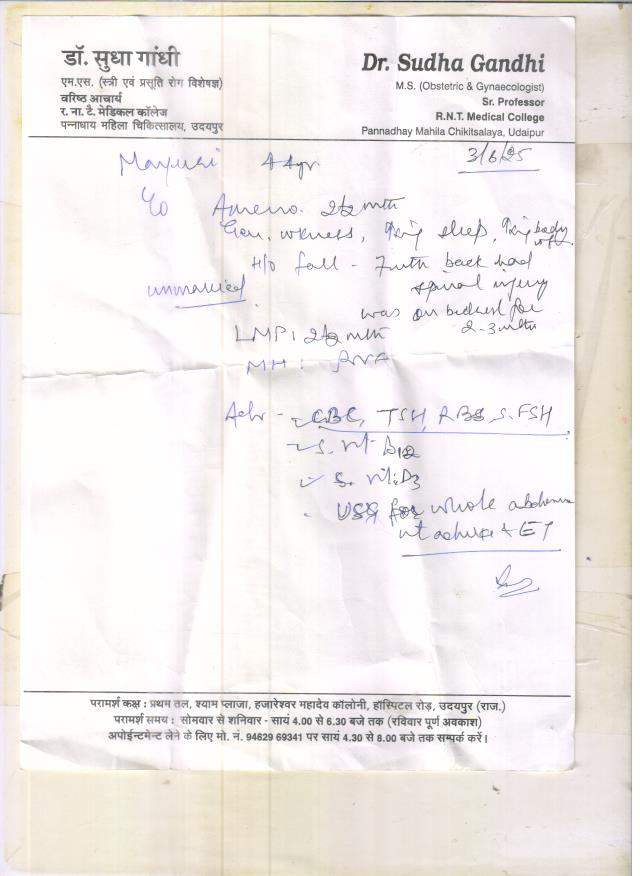 डॉ. सुधा गांधी
एम.एस. (स्त्री एवं प्रसूति रोग विशेषज्ञ)
वरिष्ठ आचार्य
र. ना. टै. मेडिकल कॉलेज
पन्नाधाय महिला चिकित्सालय, उदयपुर
Dr. Sudha Gandhi
M.S. (Obstetric & Gynaecologist)
Sr. Professor
R.N.T. Medical College
Pannadhay Mahila Chikitsalaya, Udaipur
3/6/25
Mayuri 44yr
Ameno. 2½ mth
Gen. wkness, sleep, body
H/o fall - back had
unmarried spinal injury
was on bedrest for
2-3 mth
LMP: 2½ mth
MH:
Adv - CBC, TSH, RBS, S. FSH
S. Vit B12
S. Vit D3
USG for whole abdomen
+ ET
परामर्श कक्ष : प्रथम तल, श्याम प्लाजा, हजारेश्वर महादेव कॉलोनी, हॉस्पिटल रोड़, उदयपुर (राज.)
परामर्श समय : सोमवार से शनिवार - सायं 4.00 से 6.30 बजे तक (रविवार पूर्ण अवकाश)
अपोईन्टमेन्ट लेने के लिए मो. नं. 94629 69341 पर सायं 4.30 से 8.00 बजे तक सम्पर्क करें।